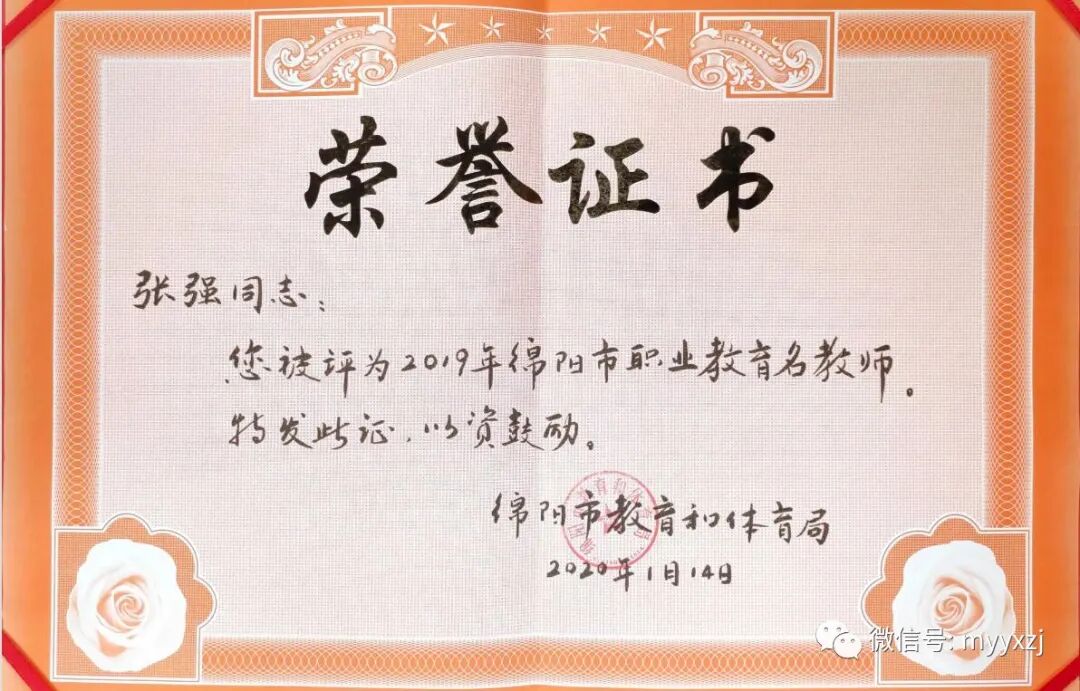 荣誉证书
张强同志：
您被评为2019年绵阳市职业教育名教师。
特发此证，以资鼓励。
绵阳市教育和体育局
2020年1月14日
微信号: myyxzj